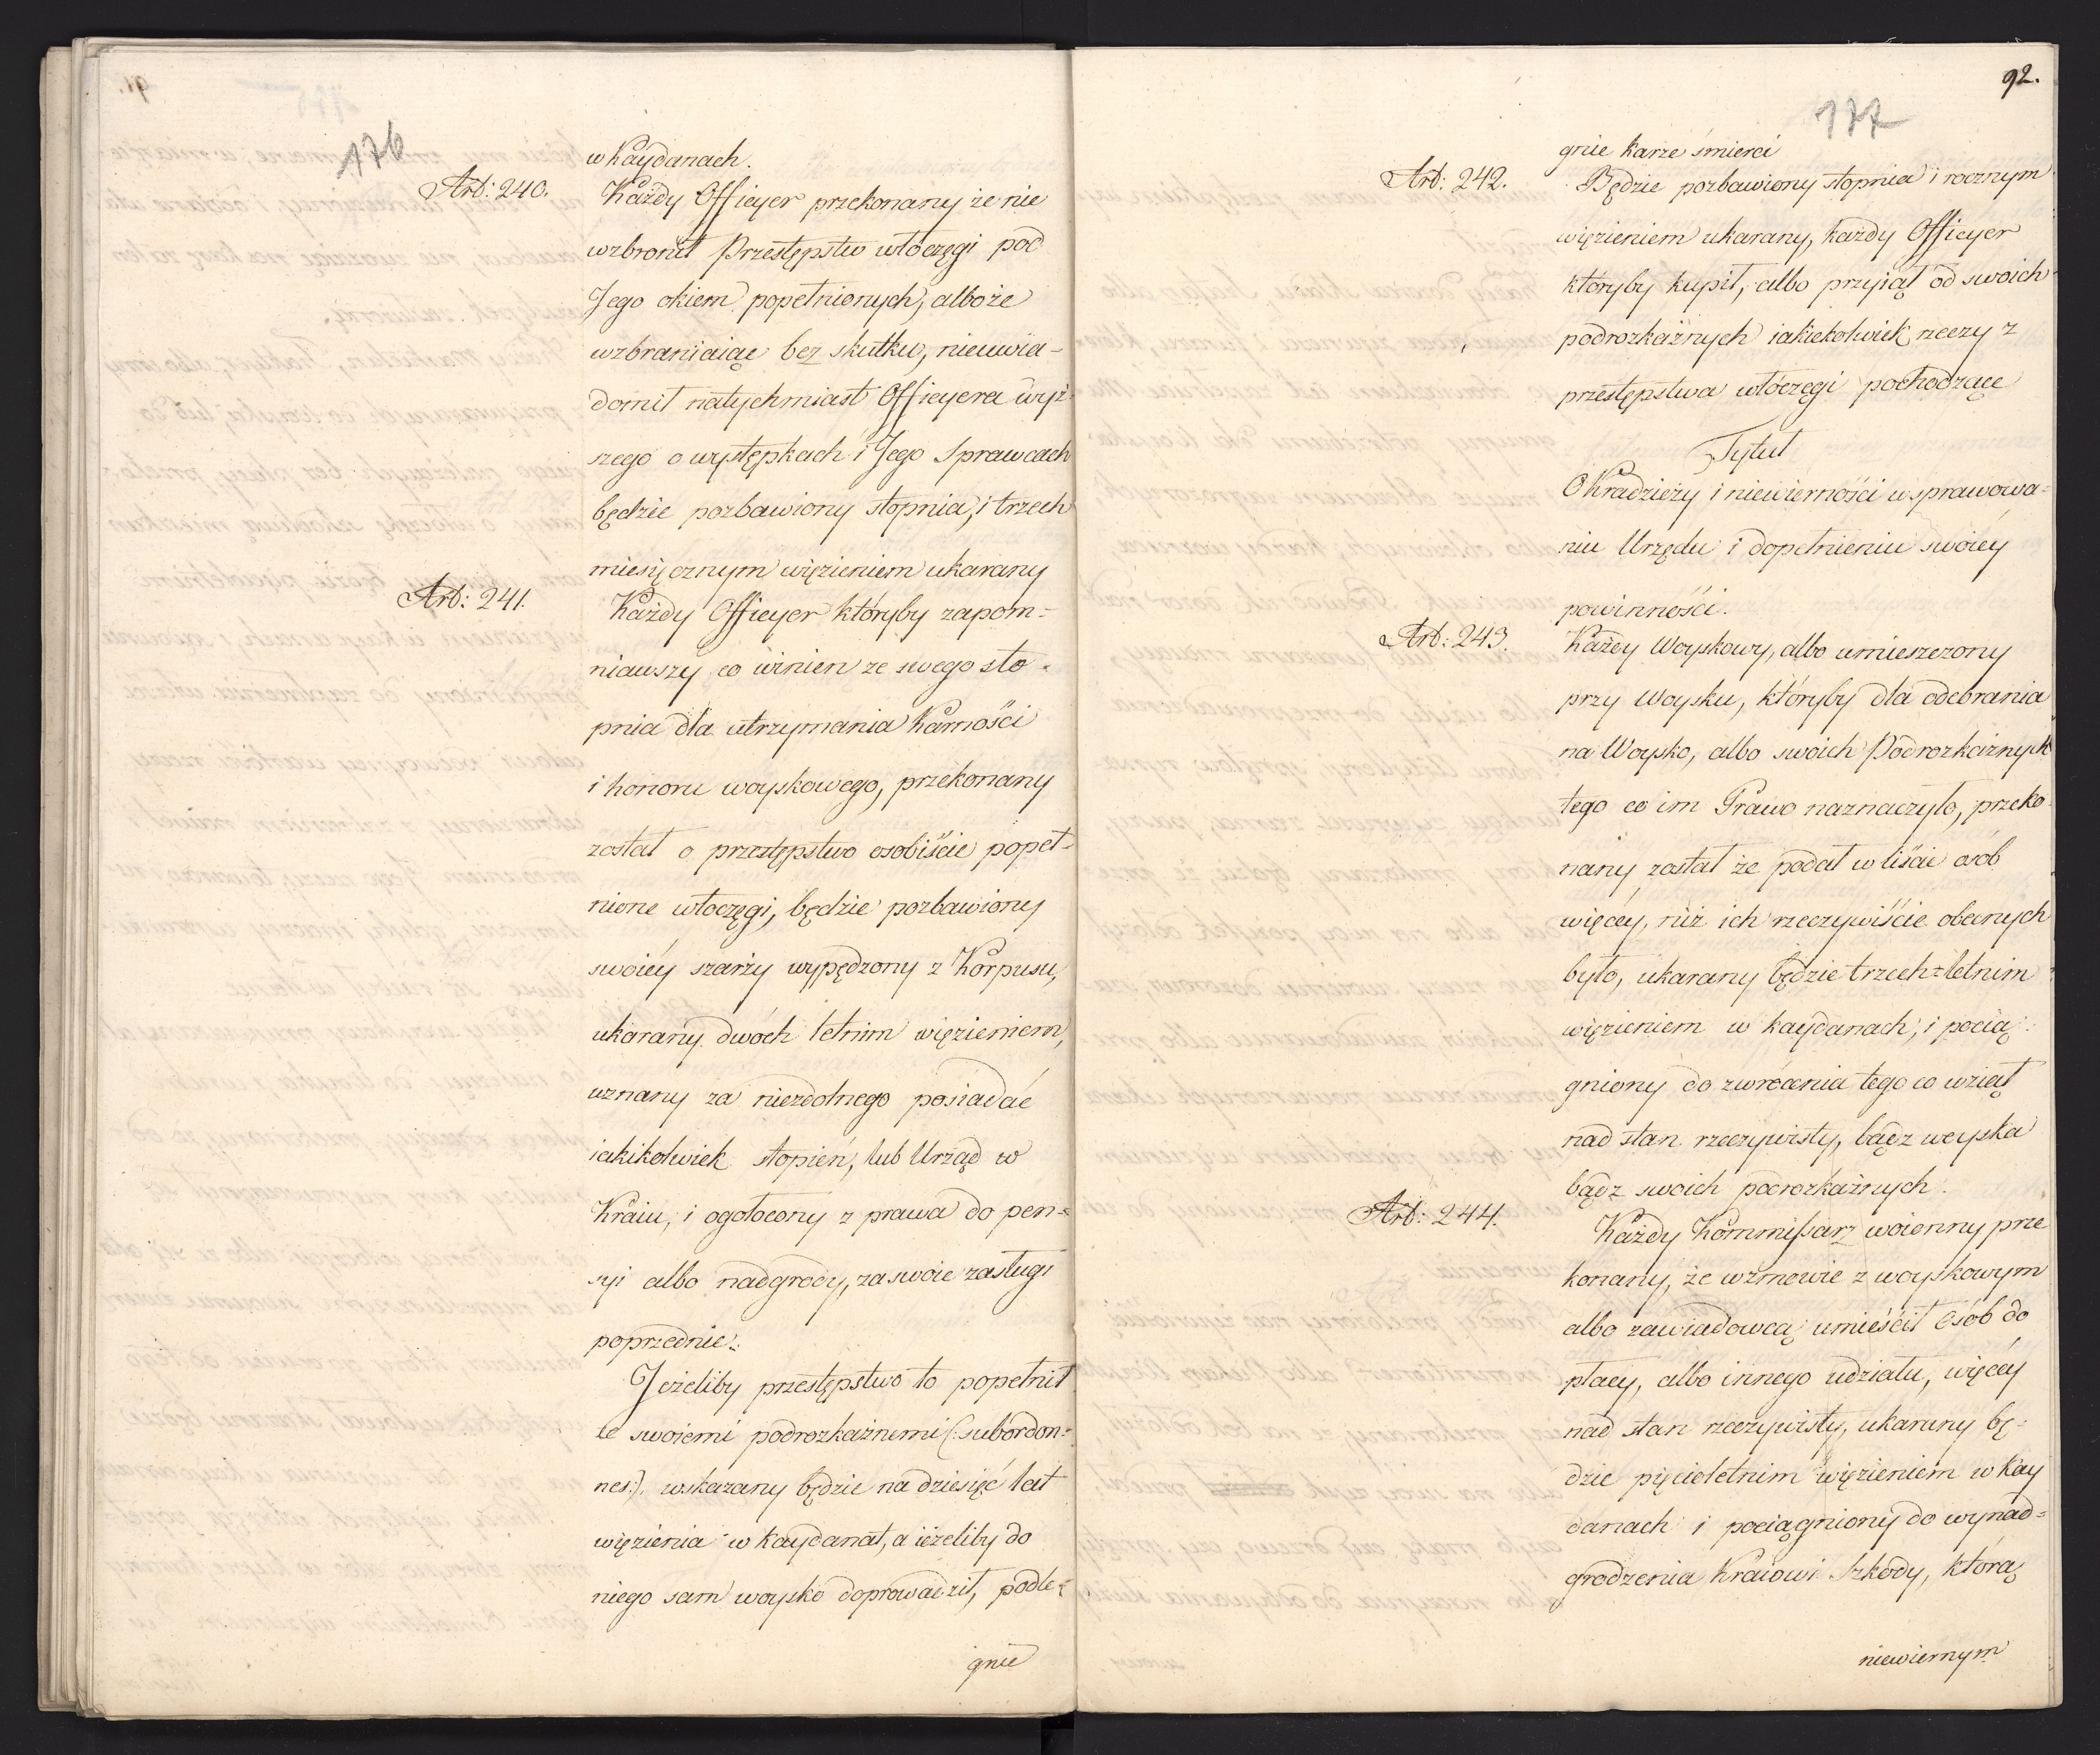 176
w Kaydanach.
Art: 240.
Każdy Officyer przekonany że nie
wzbronił Przestępstw włóczęgi pod
Jego okiem popełnionych, albo że
wzbraniaiąc bez skutku, nieuwia-
domił natychmiast Officyera wyż-
szego o występkach i Jego Sprawcach
będzie pozbawiony stopnia, i trzech
miesięcznym więzieniem ukarany
Art: 241.
Każdy Officyer któryby zapom=
niawszy co winien ze swego sto=
pnia dla utrzymania Karności
i honoru woyskowego, przekonany
został o przestępstwo osobiście popeł=
nione włoczęgi, będzie pozbawiony
swoiéy szarży wypędzony z Korpusu,
ukarany dwóch letnim więzieniem,
uznany za niezdolnego posiadać
iakikolwiek stopień, lub Urząd w
Kraiu, i ogołocony z prawa do pen=
syi albo nadgrody, za swoie zasługi
poprzednie.
Jeżeliby przestępstwo to popełnił
ze swoiemi podrozkaźnemi (:subordon=
nes:), wskazany będzie na dziesięć lat
więzienia w Kaydanat, a ieżeliby do
niego sam woysko doprowadził, podle=
gnie
92.
177
gnie karze śmierci
Art: 242.
Będzie pozbawiony stopnia i rocznym
więzieniem ukarany, każdy Officyer
któryby kupił, albo przyiął od swoich
podrozkaźnych iakiekolwiek rzeczy z
przestępstwa włóczęgi pochodzące
Tytuł
O Kradzieży i niewierności w sprawowa=
niu Urzędu i dopełnieniu swoiéy
powinności.
Art: 243.
Każdy Woyskowy, albo umieszczony
przy Woysku, któryby dla odebrania
na Woysko, albo swoich Podrozkaźnych
tego co im Prawo naznaczyło, przeko
nany został że podał w liście osób
więcéy, niż ich rzeczywiście obecnych
było, ukarany będzie trzech=letnim
więzieniem w kaydanach, i pocią
gniony do zwrócenia tego co wziął
nad stan rzeczywisty, bądz woyska
bądz swoich podrozkaźnych.
Art: 244.
Każdy Kommissarz woienny prze
konany, że w zmowie z woyskowym
albo zawiadowcą umieścił osób do
płacy, albo innego udziału, więcéy
nad stan rzeczywisty, ukarany bę=
dzie pięcioletnim więzieniem w Kay
danach i pociągniony do wynad=
grodzenia Kraiowi Szkody, którą
niewiernym